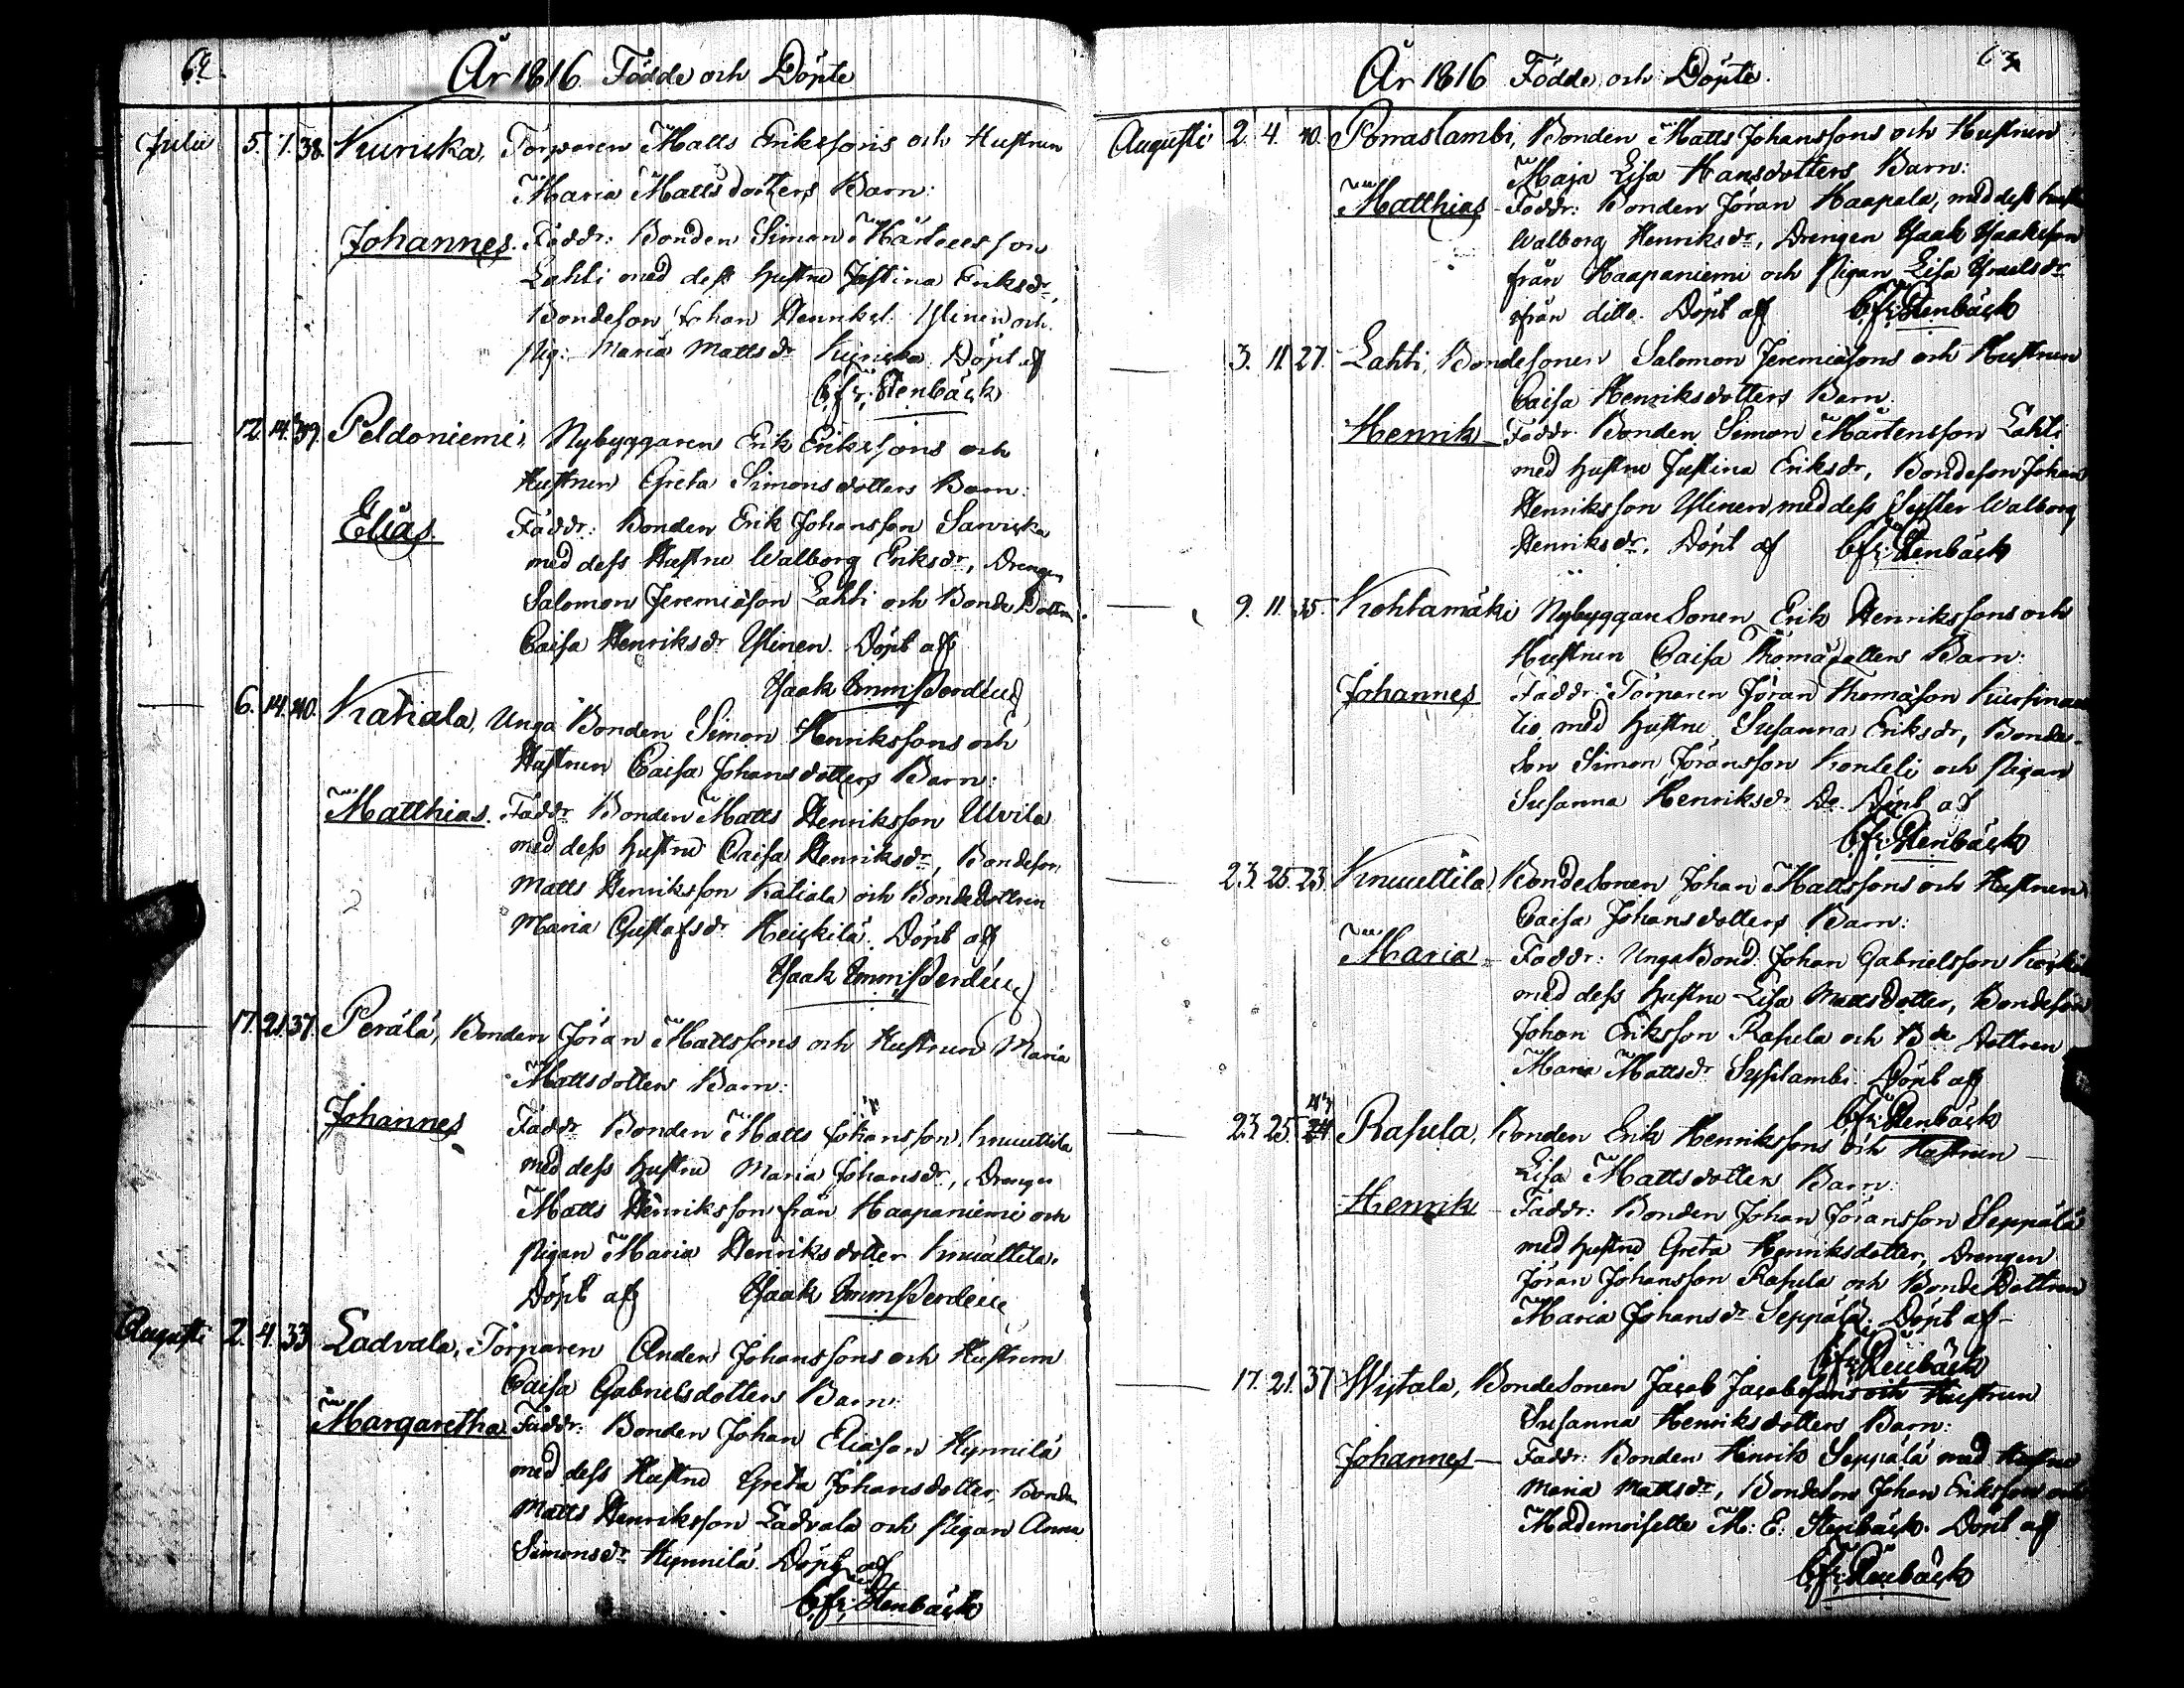 62.
År 1816 Födde och Döpte
Julii 5. 7. 38. Kuricka, Torparen Matts Erikssons och Hustrun
Maria Mattsdotters Barn:
Johannes. Faddr: Bonden Simon Mårtensson
Lahti med dess hustru Justina Eriksdr,
Bondeson Johan Henrikss. Ylinen och
Pig: Maria Mattsdr Kuricka. Döpt af
C. fr: Stenbäck
12. 14. 39. Peldoniemi, Nybyggaren Erik Erikssons och
Hustrun Greta Simonsdotters Barn:
Elias. Faddr: Bonden Erik Johansson Sarvicka
med dess Hustru Walborg Eriksdr, Drengen
Salomon Jeremiäson Lahti och Bonde Dottren
Caisa Henriksdr Ylinen. Döpt af
Isaak Emm: Perdén
6. 14. 40. Katiala, Unga Bonden Simon Henrikssons och
Hustrun Caisa Johansdotters Barn:
Matthias. Faddr Bonden Matts Henriksson Ulvila
med dess hustru Caisa Henriksdr, Bondeson
Matts Henriksson Katiala och Bondedottren
Maria Gustafsdr Heickilä. Döpt af
Isaak Emm: Perdén
17. 21. 37. Perälä, Bonden Jöran Mattssons och Hustrun Maria
Mattsdotters Barn:
Johannes Faddr Bonden Matts Johansson Knuuttila
med dess hustru Maria Johansdr, Drengen
Matts Henriksson från Haapaniemi och
Pigan Maria Henriksdotter Knuuttila.
Döpt af Isaak Emm: Perdén
Augusti 2. 4. 33 Ladvala, Torparen Anders Johanssons och Hustrun
Caisa Gabrielsdotters Barn:
Margaretha Faddr: Bonden Johan Eliäson Hynnilä
med dess Hustru Greta Johansdotter, Bonden
Matts Henriksson Ladvala och Pigan Anna
Simonsdr Hynnilä. Döpt af
C. fr: Stenbäck
63
År 1816 Födde och Döpte.
Augusti 2. 4. 40. Porraslambi, Bonden Matts Johanssons och Hustrun
Maja Lisa Hansdotters Barn:
Matthias - Faddr: Bonden Jöran Haapala, med dess hustru
Walborg Henriksdr, Drengen Isaak Isaaksson
från Haapaniemi och Pigan Lisa Israelsdr
från ditto. Döpt af C. fr: Stenbäck
3. 11. 27. Lahti, Bondesonen Salomon Jeremiäsons och Hustrun
Caisa Henriksdotters Barn.
Henrik Faddr. Bonden Simon Mårtensson Lahti
med hustru Justina Eriksdr, Bondeson Johan
Henriksson Ylinen med dess Syster Walborg
Henriksdr. Döpt af C. fr: Stenbäck
9. 11. 35. Kohtamäki Nybyggare Sonen Erik Henrikssons och
Hustrun Caisa Thomädotters Barn:
Johannes Faddr: Torparen Jöran Thomäson
med hustru Susanna Eriksdr, Bonde-
Son Simon Jöransson Konteli och Pigan
Susanna Henriksdr Do. Döpt af
C. fr: Stenbäck
23. 25. 23. Knuuttila, Bondesonen Johan Mattssons och Hustrun
Caisa Johansdotters Barn:
Maria - Faddr: Unga Bond. Johan Gabrielsson
med dess hustru Lisa Mattsdotter, Bondeson
Johan Eriksson Rasula och Bde Dottren
Maria Mattsdr Sysslambi. Döpt af
C. fr: Stenbäck
23. 25. 24 Rasula, Bonden Erik Henrikssons och Hustrun
Lisa Mattsdotters Barn:
Henrik - Faddr: Bonden Johan Jöransson Seppälä
med hustru Greta Henriksdotter, Drengen
Jöran Johansson Rasula och Bonde Dottren
Maria Johansdr Seppälä. Döpt af
C. fr: Stenbäck
17. 21. 37 Wistala, Bondesonen Jacob Jacobssons och Hustrun
Susanna Henriksdotters Barn:
Johannes - Faddr: Bonden Henrik Seppälä med Hustru
Maria Mattsdr, Bondeson Johan Eriksson och
Mademoiselle M: E: Stenbäck. Döpt af
C. fr: Stenbäck